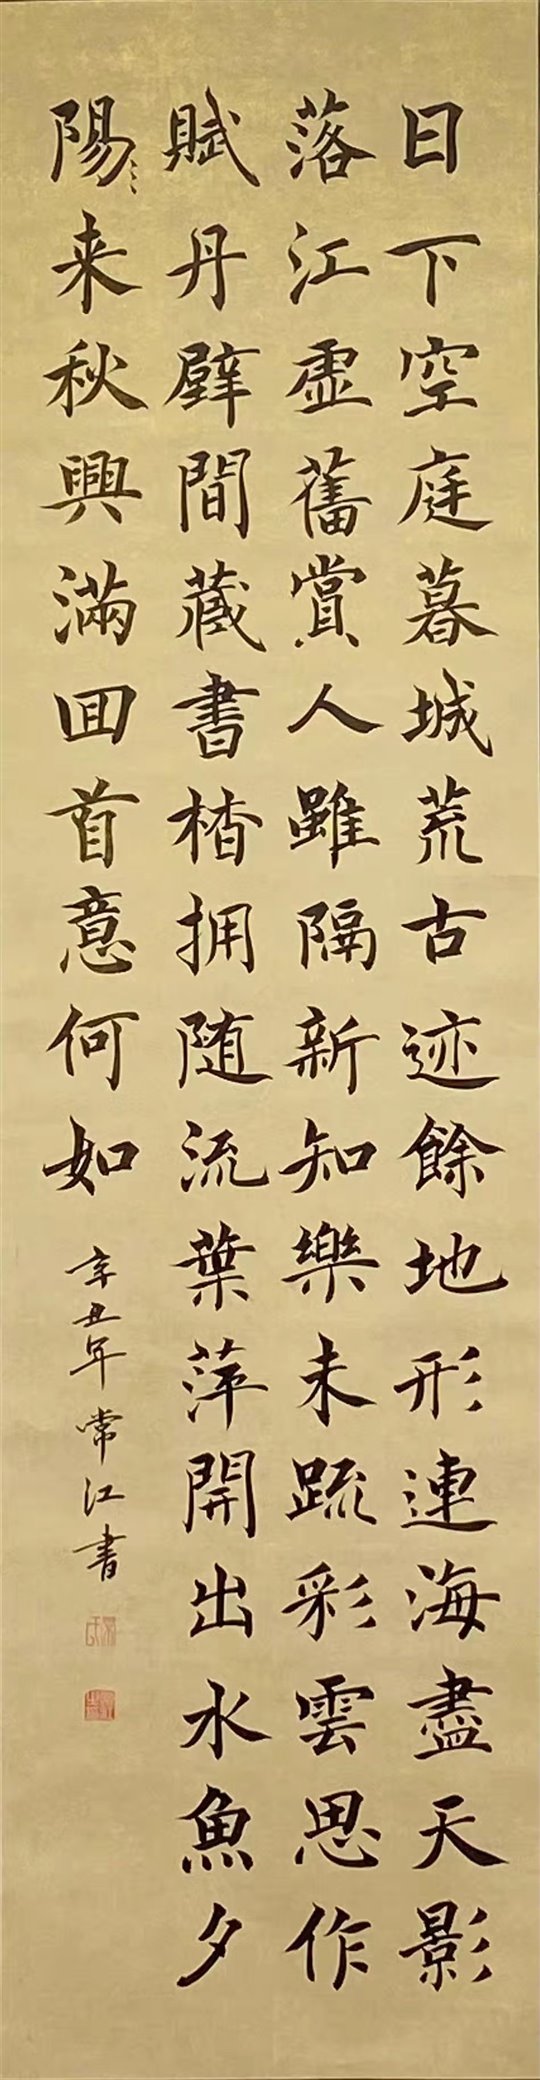 日下空庭暮城荒古迹餘地形連海盡天影
落江虛舊賞人雖隔新知樂未疏彩雲思作
賦丹壁間藏書楂拥随流葉萍開出水魚夕
陽来秋興滿回首意何如
辛丑年常江書